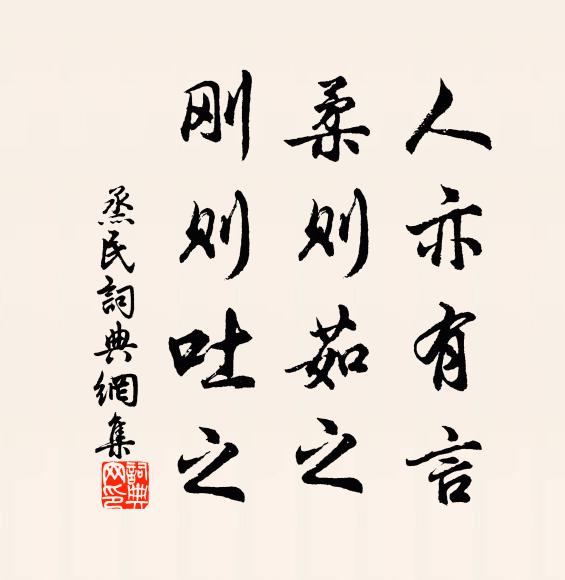 人亦有言
柔则茹之
刚则吐之
烝民詞典網集
詞典网印